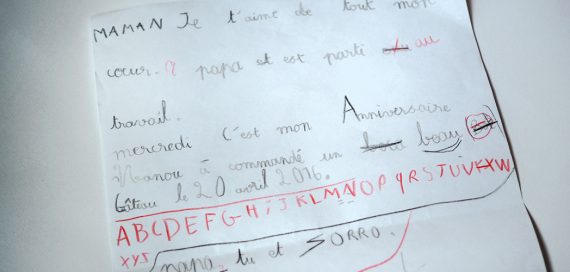 MAMAN Je t'aime de tout mon
cœur. papa et est parti au
travail.
mercredi C'est mon Anniversaire
Nanou à commandé un beau
Gâteau le 20 avril 2016.
ABCDEFGHIJKLMNOPQRSTUVXW
XYZ
papa. tu et SORRO.